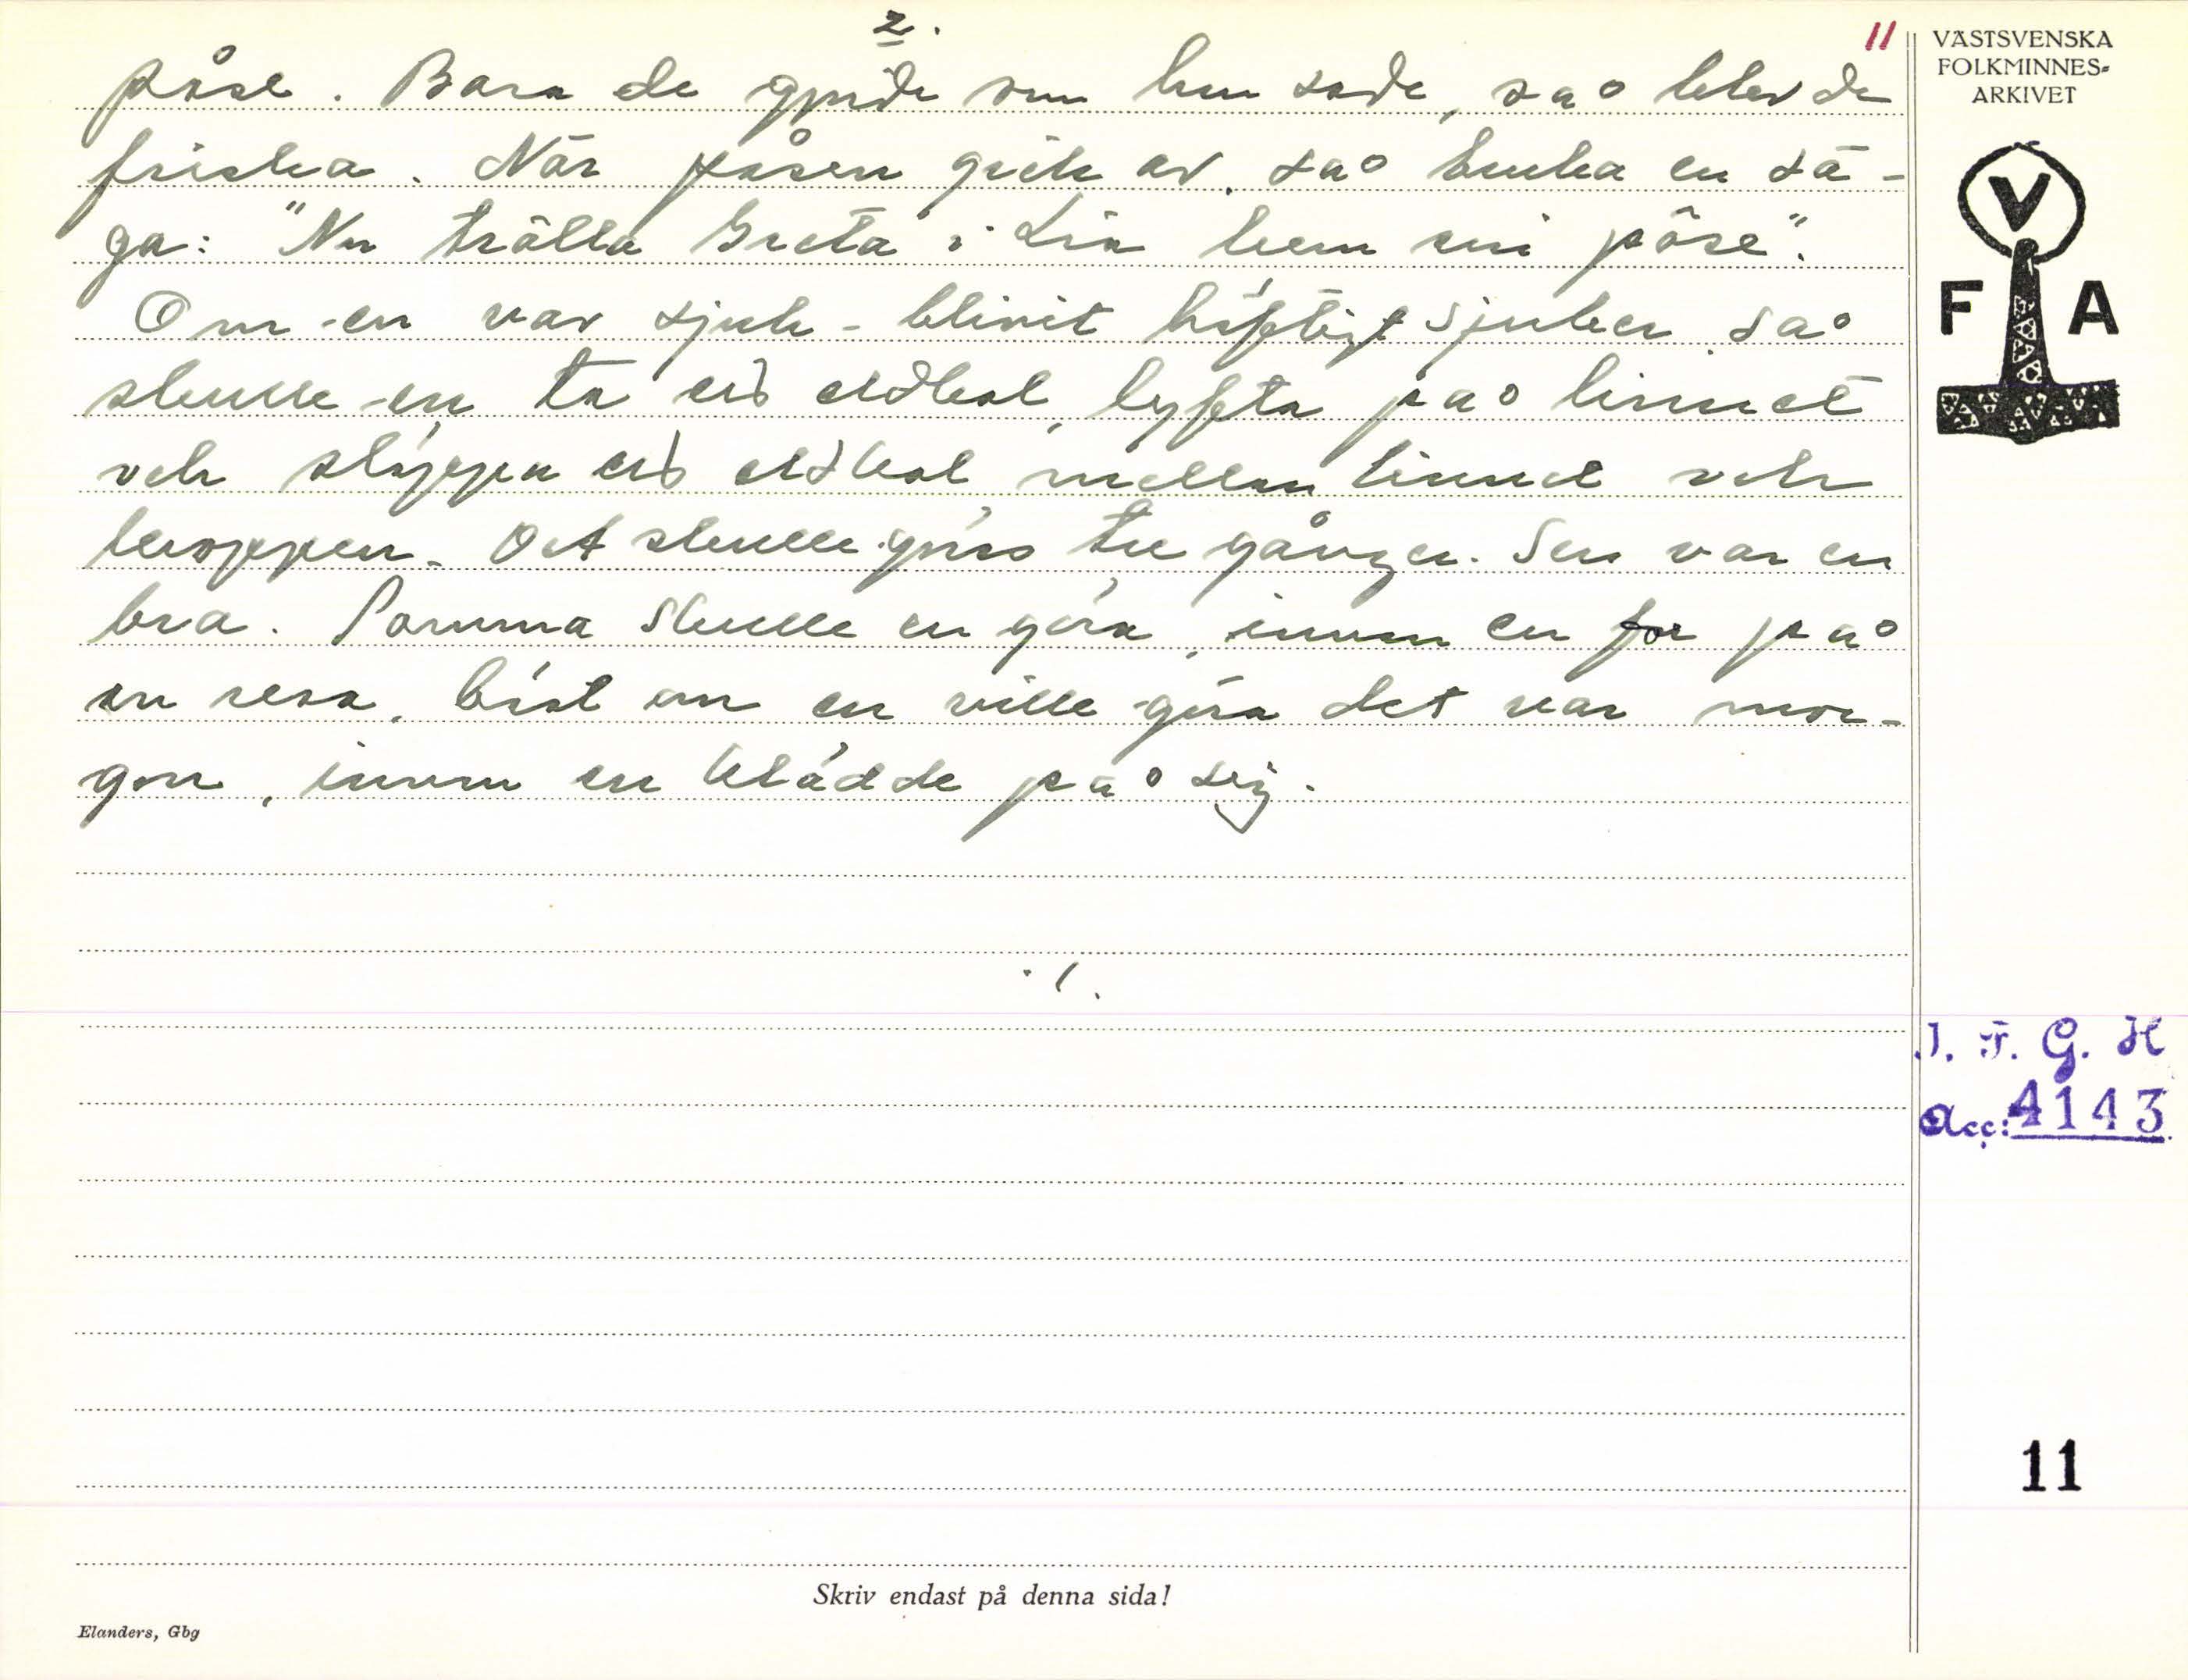 2.
11
påse. Bara de gjorde som hon sade, så blev de
friska. När påsen gick av, så bruka en sä-
ga: "Nu trälla Greta i Lia hem sin påse".
Om en var sjuk - blivit häftigt sjuker så
skulle en ta eld eldkol, lyfta på linnet
och släppa eld eldkol mellan linnet och
kroppen. Det skulle göras tre gånger. Sen var en
bra. Samma skulle en göra, innan en for på
en resa, bäst om en ville göra det var mor-
gon, innan en klädde på sig.
./.
VÄSTSVENSKA
FOLKMINNES-
ARKIVET
V
F A
I. F. G. H
Acc: 4143.
11
Skriv endast på denna sida!
Elanders, Gbg